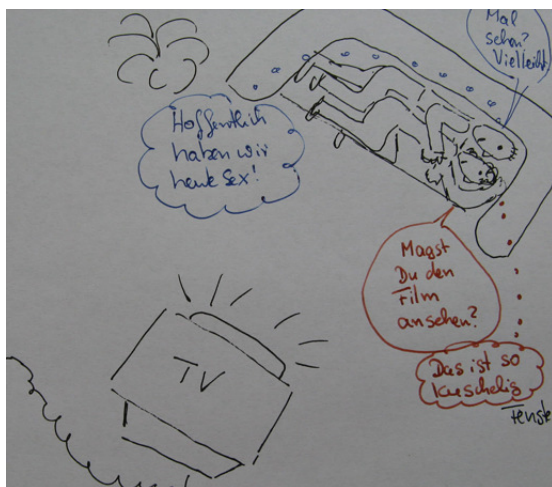 Mal
sehen?
Vielleicht
Hoffentlich
haben wir
heute Sex!
Magst
Du den
Film
ansehen?
Das ist so
kuschelig
TV
Fenste